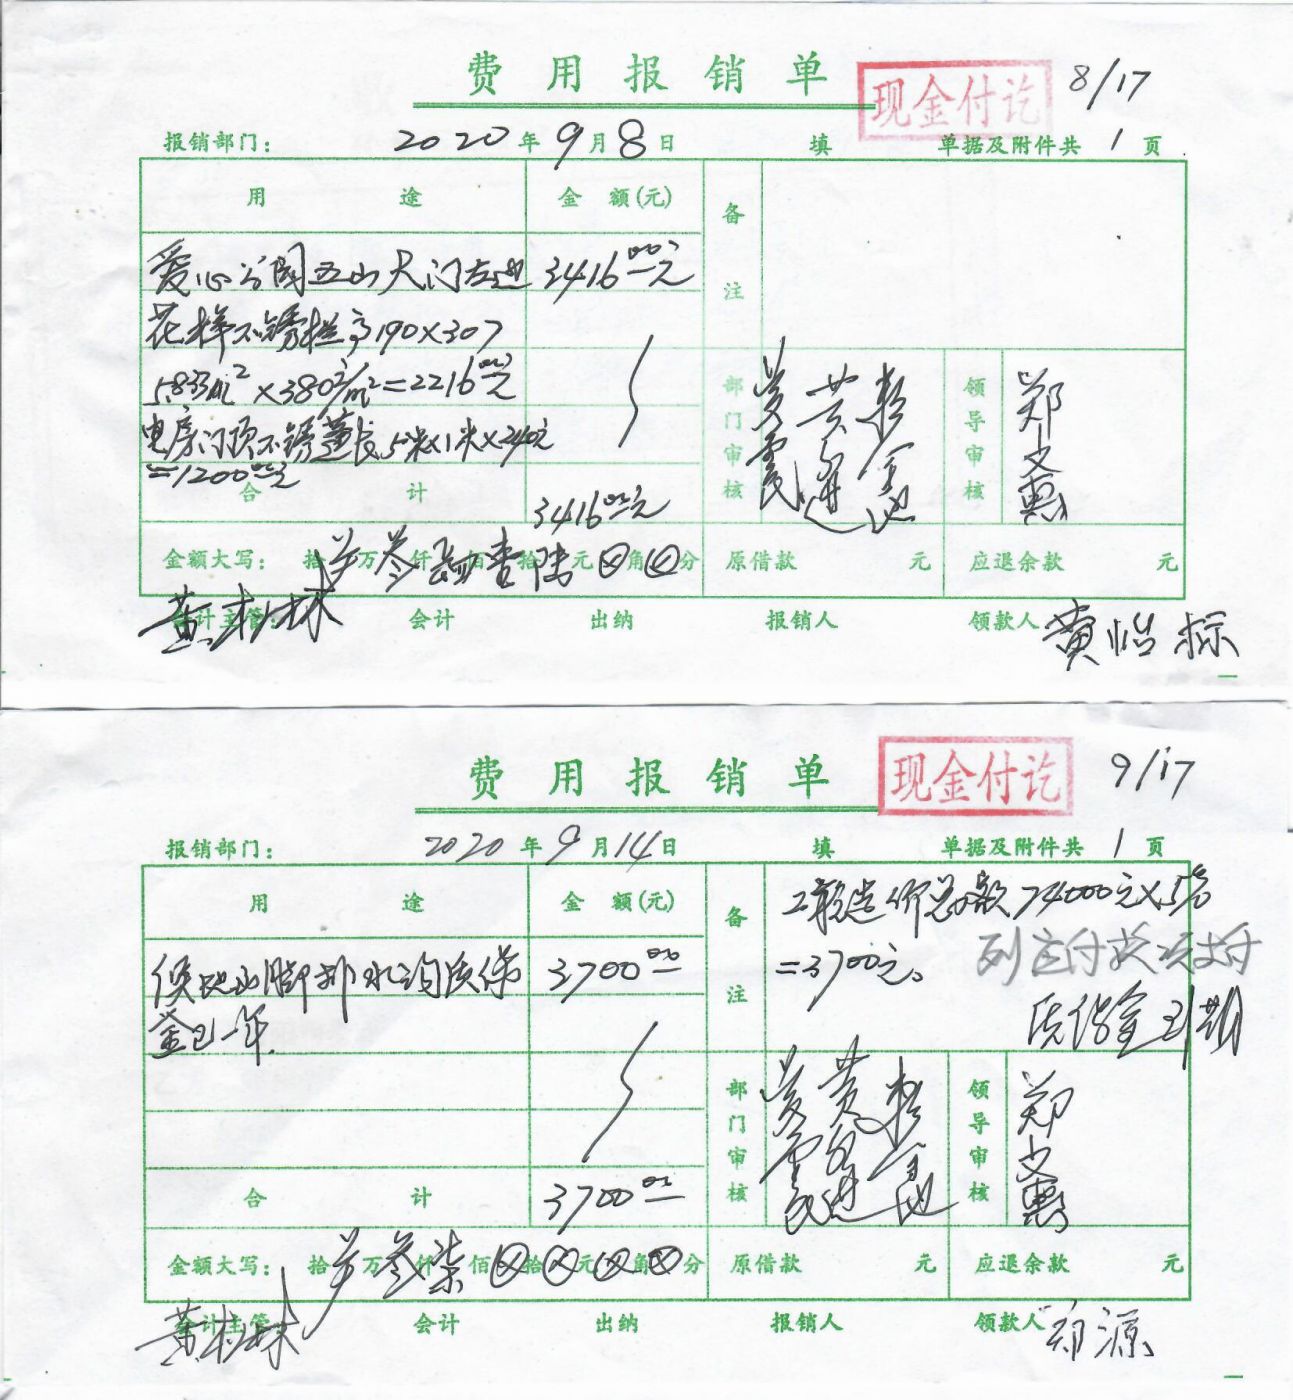 费用报销单
现金付讫
8/17
报销部门： 2020年9月8日 填 单据及附件共 1 页
用 途 金 额(元) 备注
爱心公园五山大门左边 3416元
花样不锈栏高190×307
5.833m²×380元/m²=2216元
电房门顶不锈蓬长5米×1米×240元
=1200元
合 计 3416元
部门审核 领导审核 郑文惠
金额大写： 拾 万叁仟肆佰壹拾陆元⊗角⊗分 原借款 元 应退余款 元
会计主管： 黄树林 会计 出纳 报销人 领款人 黄怡标
费用报销单
现金付讫
9/17
报销部门： 2020年9月14日 填 单据及附件共 1 页
用 途 金 额(元) 备注
工程造价总款74000元×5%
=3700元。
列应付款项支付
质保金到期
山脚排水沟质保 3700
金已一年
合 计 3700
部门审核 领导审核 郑文惠
金额大写： 拾 万叁仟柒佰⊗拾⊗元⊗角⊗分 原借款 元 应退余款 元
会计主管： 黄树林 会计 出纳 报销人 领款人 郑源